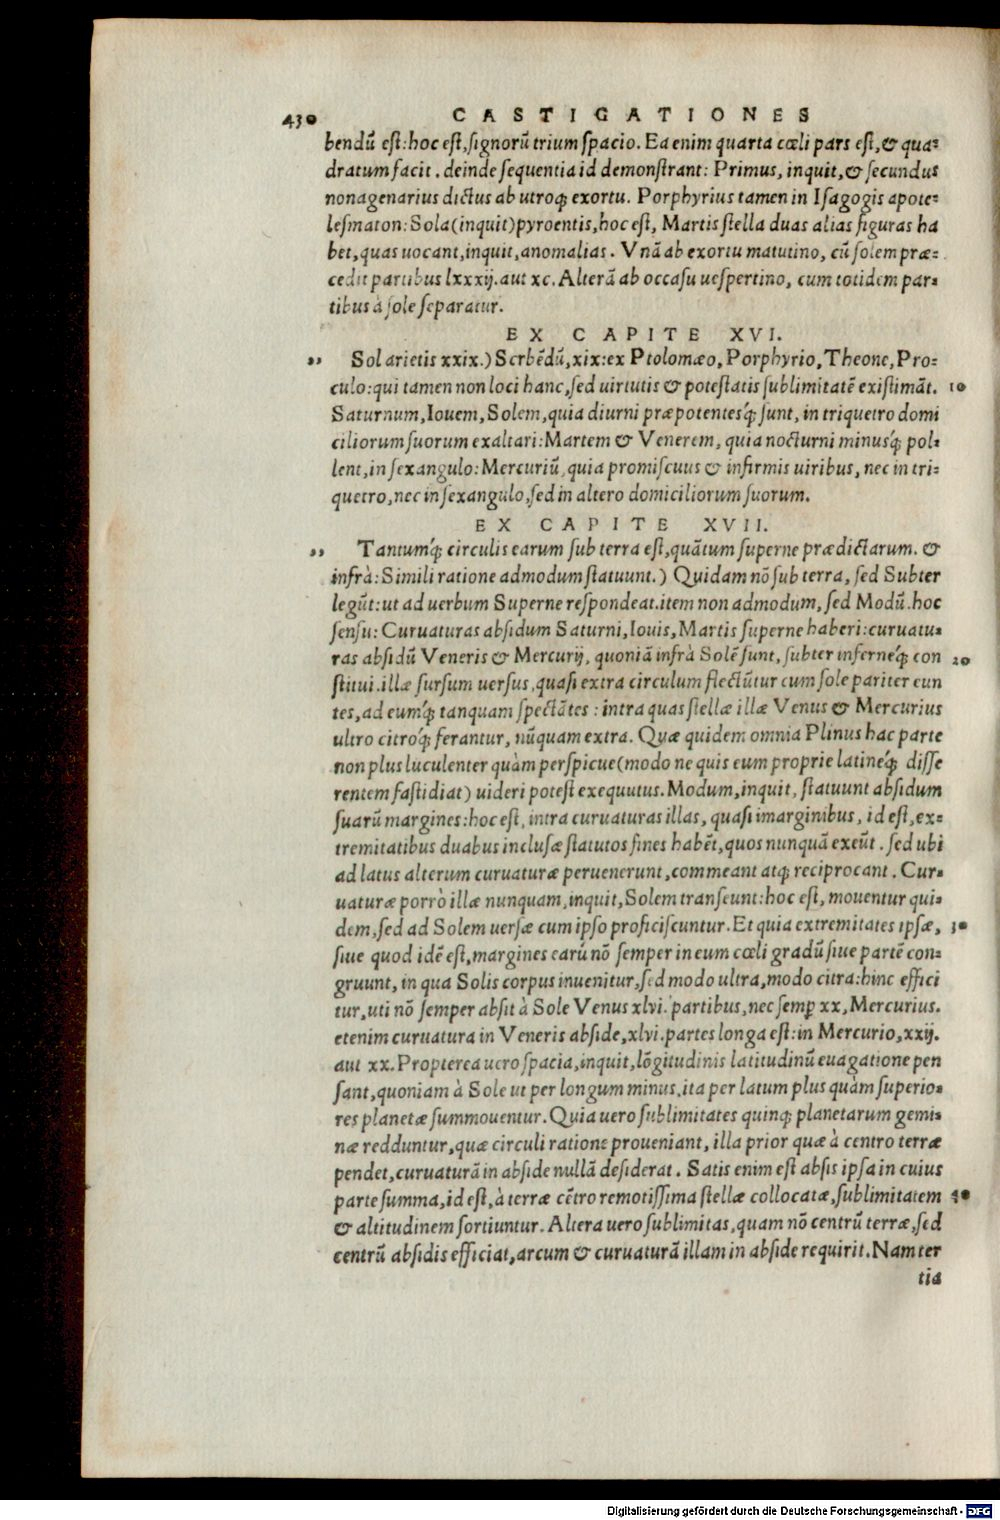 430 CASTIGATIONES
bendũ est: hoc est, signorũ trium spacio. Ea enim quarta cœli pars est, & qua-
dratum facit. deinde sequentia id demonstrant: Primus, inquit, & secundus
nonagenarius dictus ab utroq; exortu. Porphyrius tamen in Isagogis apote-
lesmaton: Sola (inquit) pyroentis, hoc est, Martis stella duas alias figuras ha
bet, quas uocant, inquit, anomalias. Vnã ab exortu matutino, cũ solem præ-
cedit partibus lxxxij. aut xc. Alterã ab occasu uespertino, cum totidem par-
tibus à sole separatur.
EX CAPITE XVI.
,, Sol arietis xxix.) Scrbẽdũ, xix: ex Ptolomæo, Porphyrio, Theone, Pro-
culo: qui tamen non loci hanc, sed uirtutis & potestatis sublimitatẽ existimãt. 10
Saturnum, Iouem, Solem, quia diurni præpotentesq́; sunt, in triquetro domi
ciliorum suorum exaltari: Martem & Venerem, quia nocturni minusq́; pol-
lent, in sexangulo: Mercuriũ, quia promiscuus & infirmis uiribus, nec in tri-
quetro, nec in sexangulo, sed in altero domiciliorum suorum.
EX CAPITE XVII.
,, Tantumq́; circulis earum sub terra est, quãtum superne prædictarum. &
infrà: Simili ratione admodum statuunt.) Quidam nõ sub terra, sed Subter
legũt: ut ad uerbum Superne respondeat. item non admodum, sed Modũ. hoc
sensu: Curuaturas absidum Saturni, Iouis, Martis superne haberi: curuatu-
ras absidũ Veneris & Mercurij, quoniã infrà Solẽ sunt, subter inferneq́; con 20
stitui. illæ sursum uersus, quasi extra circulum flectũtur cum sole pariter eun
tes, ad eumq́; tanquam spectãtes: intra quas stellæ illæ Venus & Mercurius
ultro citroq́; ferantur, nũquam extra. Quæ quidem omnia Plinus hac parte
non plus luculenter quàm perspicue (modo ne quis eum proprie latineq́; disse
rentem fastidiat) uideri potest exequutus. Modum, inquit, statuunt absidum
suarũ margines: hoc est, intra curuaturas illas, quasi imarginibus, id est, ex-
tremitatibus duabus inclusæ statutos fines habẽt, quos nunquã exeũt. sed ubi
ad latus alterum curuaturæ peruenerunt, commeant atq; reciprocant. Cur-
uaturæ porrò illæ nunquam, inquit, Solem transeunt: hoc est, mouentur qui-
dem, sed ad Solem uersæ cum ipso proficiscuntur. Et quia extremitates ipsæ, 30
siue quod idẽ est, margines earũ nõ semper in eum cœli gradũ siue partẽ con-
gruunt, in qua Solis corpus inuenitur, sed modo ultra, modo citra: hinc effici
tur, uti nõ semper absit à Sole Venus xlvi. partibus, nec semꝑ xx, Mercurius.
etenim curuatura in Veneris abside, xlvi. partes longa est: in Mercurio, xxij.
aut xx. Propterea uero spacia, inquit, lõgitudinis latitudinũ euagatione pen
sant, quoniam à Sole ut per longum minus, ita per latum plus quàm superio-
res planetæ summouentur. Quia uero sublimitates quinq; planetarum gemi-
næ redduntur, quæ circuli ratione proueniant, illa prior quæ à centro terræ
pendet, curuaturã in abside nullã desiderat. Satis enim est absis ipsa in cuius
parte summa, id est, à terræ cẽtro remotissima stellæ collocatæ, sublimitatem 40
& altitudinem sortiuntur. Altera uero sublimitas, quam nõ centrũ terræ, sed
centrũ absidis efficiat, arcum & curuaturã illam in abside requirit. Nam ter
tia
Digitalisierung gefördert durch die Deutsche Forschungsgemeinschaft - DFG